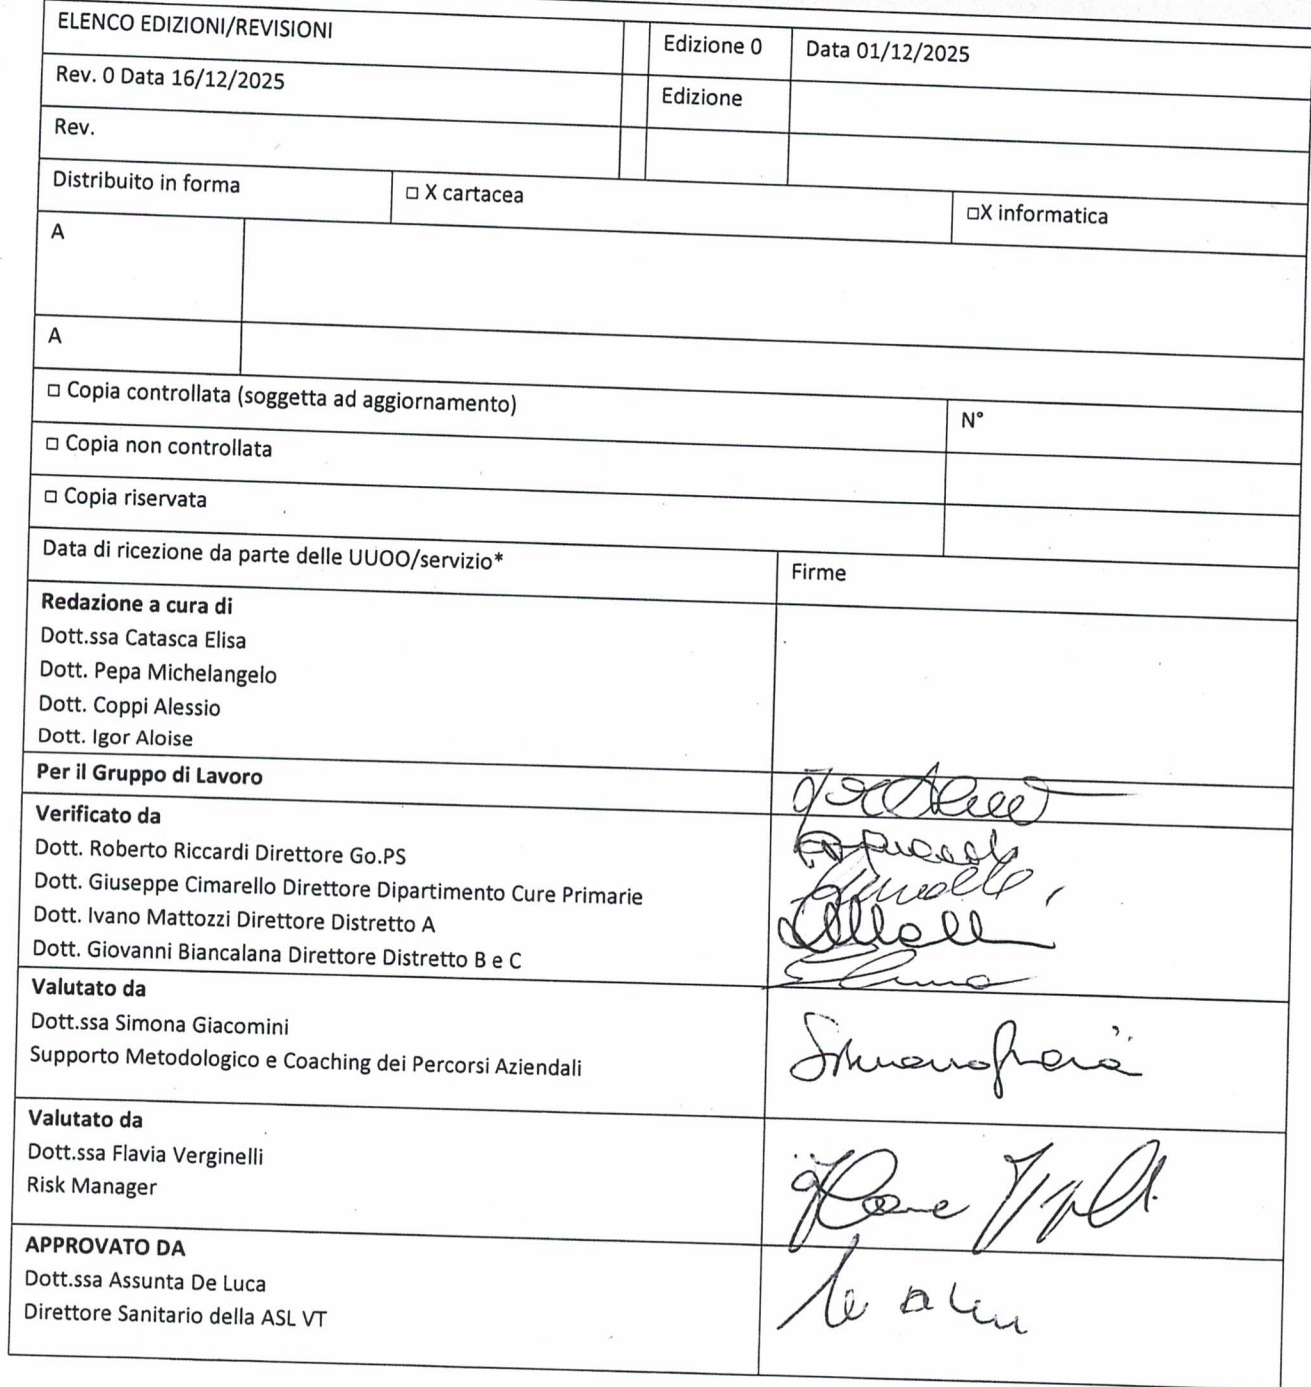 ELENCO EDIZIONI/REVISIONI
Edizione 0
Data 01/12/2025
Rev. 0 Data 16/12/2025
Edizione
Rev.
Distribuito in forma
□ X cartacea
□X informatica
A
A
□ Copia controllata (soggetta ad aggiornamento)
N°
□ Copia non controllata
□ Copia riservata
Data di ricezione da parte delle UUOO/servizio*
Firme
Redazione a cura di
Dott.ssa Catasca Elisa
Dott. Pepa Michelangelo
Dott. Coppi Alessio
Dott. Igor Aloise
Per il Gruppo di Lavoro
Verificato da
Dott. Roberto Riccardi Direttore Go.PS
Dott. Giuseppe Cimarello Direttore Dipartimento Cure Primarie
Dott. Ivano Mattozzi Direttore Distretto A
Dott. Giovanni Biancalana Direttore Distretto B e C
Valutato da
Dott.ssa Simona Giacomini
Supporto Metodologico e Coaching dei Percorsi Aziendali
Valutato da
Dott.ssa Flavia Verginelli
Risk Manager
APPROVATO DA
Dott.ssa Assunta De Luca
Direttore Sanitario della ASL VT